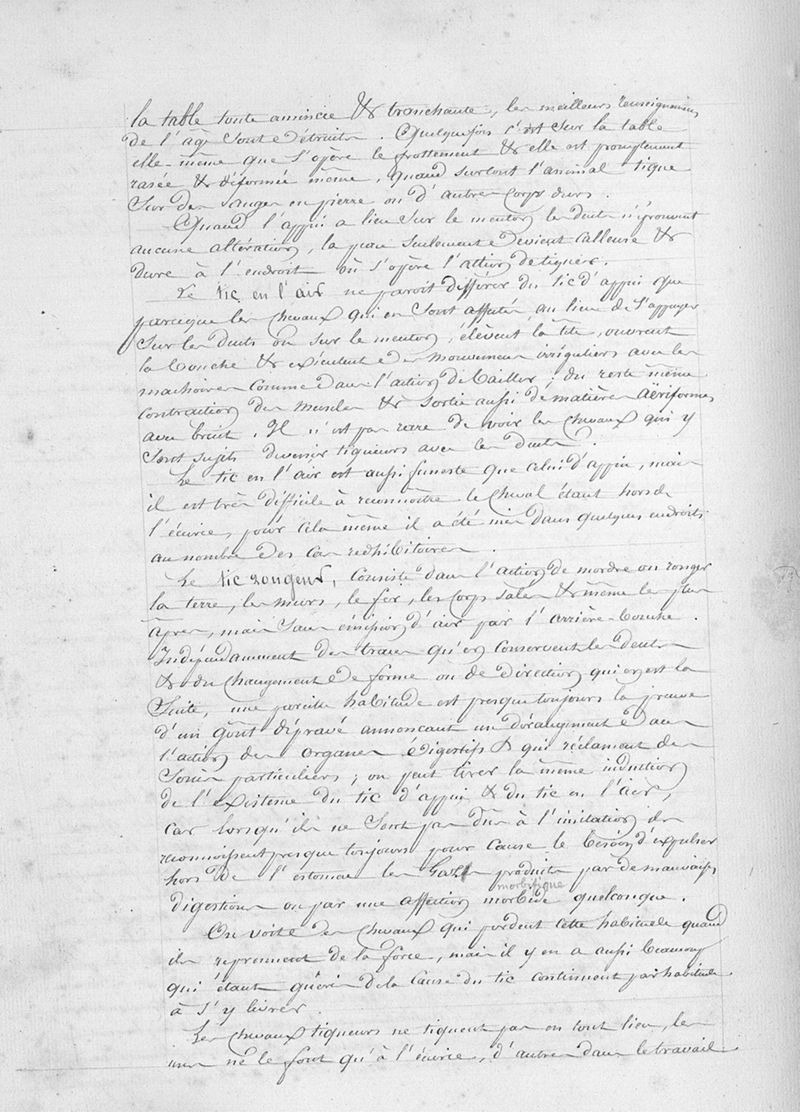 la table toute amincie & tranchante, les meilleurs renseignemens
de l'âge sont détruits. Quelquefois c'est sur la table
elle-même que s'opère le frottement & elle est promptement
rasée & déformée même, quand surtout l'animal tique
sur des auges en pierre ou d'autres corps durs.
Quand l'appui a lieu sur le menton, les dents n'éprouvent
aucune altération, la peau seulement devient calleuse &
dure à l'endroit où s'opère l'action de tiquer.
Le tic en l'air ne paroit différer du tic d'appui que
parceque les chevaux qui en sont affectés, au lieu de s'appuyer
sur les dents ou sur le menton, élèvent la tête, ouvrent
la bouche & exécutent des mouvemens irréguliers avec les
machoires comme dans l'action de bailler; du reste même
contraction des muscles & sortie aussi de matières aëriformes
avec bruit. Il n'est pas rare de voir les chevaux qui y
sont sujets devenir tiqueurs avec les dents.
Le tic en l'air est aussi funeste que celui d'appui, mais
il est très difficile à reconnoître le cheval étant hors de
l'écurie, pour cela même il a été mis dans quelques endroits
au nombre des cas redhibitoires.
Le tic rongeur, consiste dans l'action de mordre ou ronger
la terre, les murs, le fer, les corps salés & même les plus
âpres, mais sans émission d'air par l'arrière-bouche.
Indépendamment des traces qu'en conservent les dents
& du changement de forme ou de direction qui en est la
suite, une pareille habitude est presque toujours la preuve
d'un goût dépravé annoncant un dérangement dans
l'action des organes digestifs & qui réclament des
soins particuliers; on peut tirer la même induction
de l'existence du tic d'appui & du tic en l'air,
car lorsqu'ils ne sont pas dûs à l'imitation ils
reconnoissent presque toujours pour cause le besoin d'expulser
hors de l'estomac les gaz produits par de mauvaises
morbifique
digestions ou par une affection morbide quelconque.
On voit des chevaux qui perdent cette habitude quand
ils reprennent de la force, mais il y en a aussi beaucoup
qui étant guéris de la cause du tic continuent par habitude
à s'y livrer.
Les chevaux tiqueurs ne tiquent pas en tout lieu, les
uns ne le font qu'à l'écurie, d'autres dans le travail